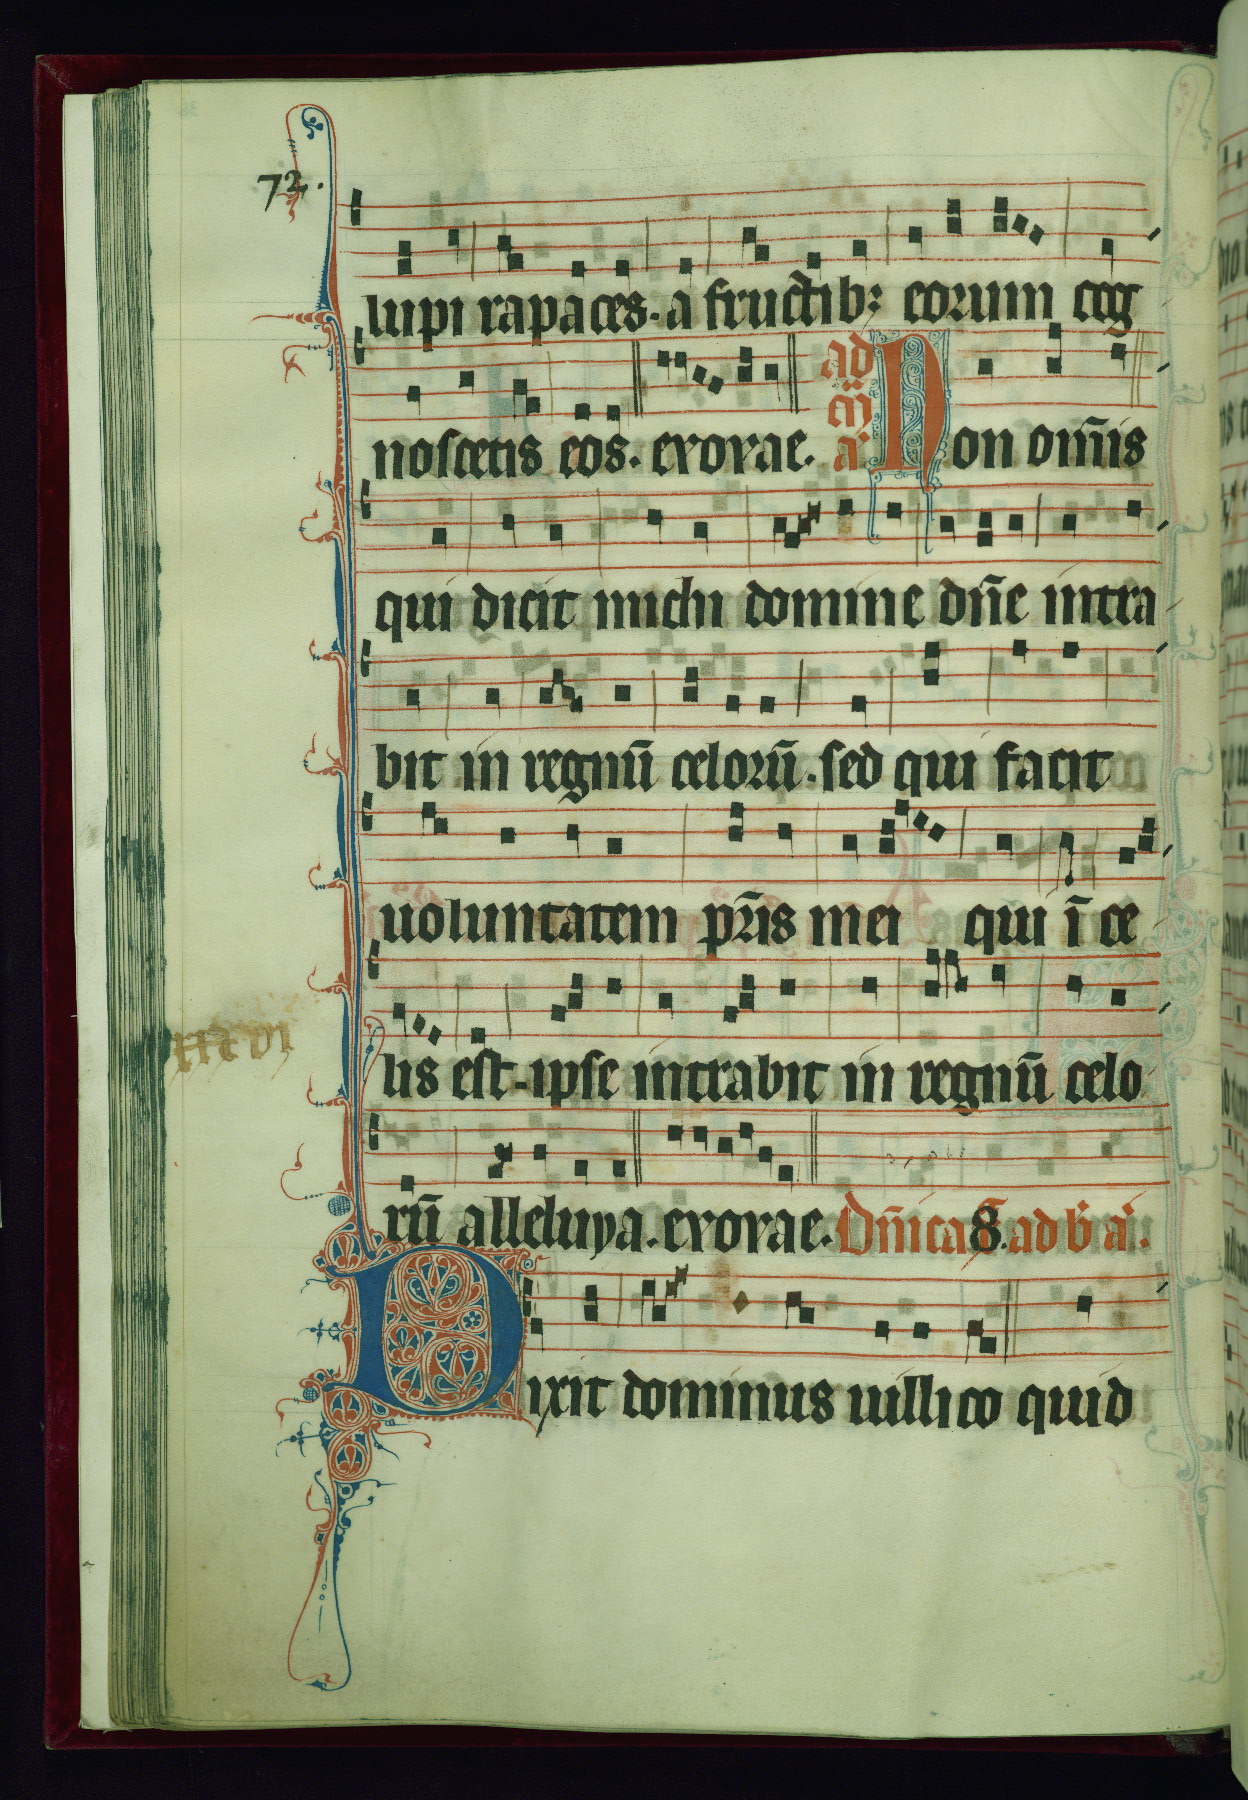 72.
lupi rapaces. a fructibꝫ eorum cog
noscetis eos. evovae. ad cñ a᷑ Non om̃is
qui dicit michi domine dñe intra
bit in regnũ celorũ. sed qui facit
uoluntatem pr̃is mei qui ĩ ce
lis est. ipse intrabit in regnũ celo
rũ alleluya. evovae. Dñica 8. ad b̃ a᷑.
Dixit dominus uillico quid